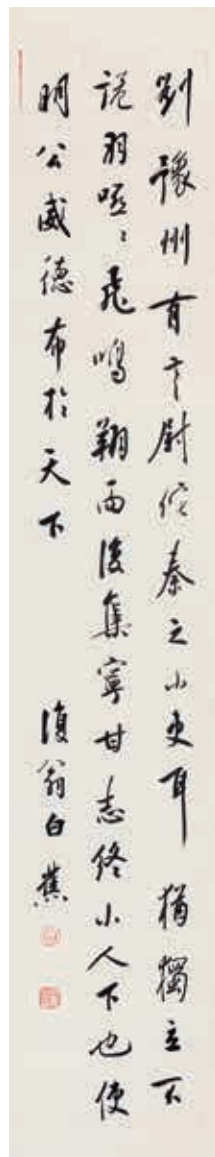 劉豫州有言尉佗秦之小吏耳猶獨立不
詭羽嘔〻飛鳴翔而後集寧甘志終小人下也使
明公威德布於天下
復翁白蕉